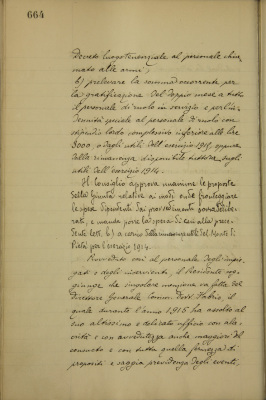 664
Decreto luogotenenziale al personale chia-
mato alle armi;
b) prelevare la somma occorrente per
la gratificazione del doppio mese a tutto
il personale di ruolo in servizio e per l'in-
dennità speciale al personale di ruolo con
stipendio lordo complessivo inferiore alle lire
3000 dagli utili dell'esercizio 1915, oppure
dalla rimanenza disponibile tuttora sugli
utili dell'esercizio 1914.
Il Consiglio approva unanime le proposte
della Giunta relative a
la spesa dipendente dai provvedimenti
e manda porre la spesa di cui alla prece-
dente lett. b) a carico della rimanenza utili del Monte di
Pietà per l'esercizio 1914.
Provveduto così al personale degli impie-
gati e degli inservienti, il Presidente sog-
giunge che singolare menzione va fatta del
Direttore Generale Comm. Dott. il
quale durante l'anno 1915 ha assolto al
suo altissimo e delicato ufficio con ala-
crità e con avvedutezza anche maggiori del
consueto e con tutta quella fermezza di
propositi e saggia previdenza degli eventi,